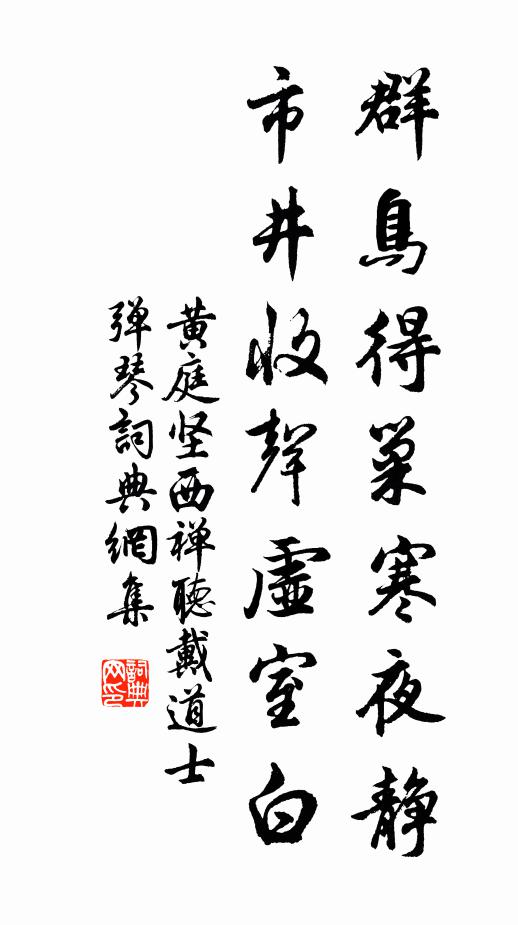 群鳥得巢寒夜静
市井收聲虛室白
黃庭坚西禅聽戴道士
弹琴詞典網集
詞典网印